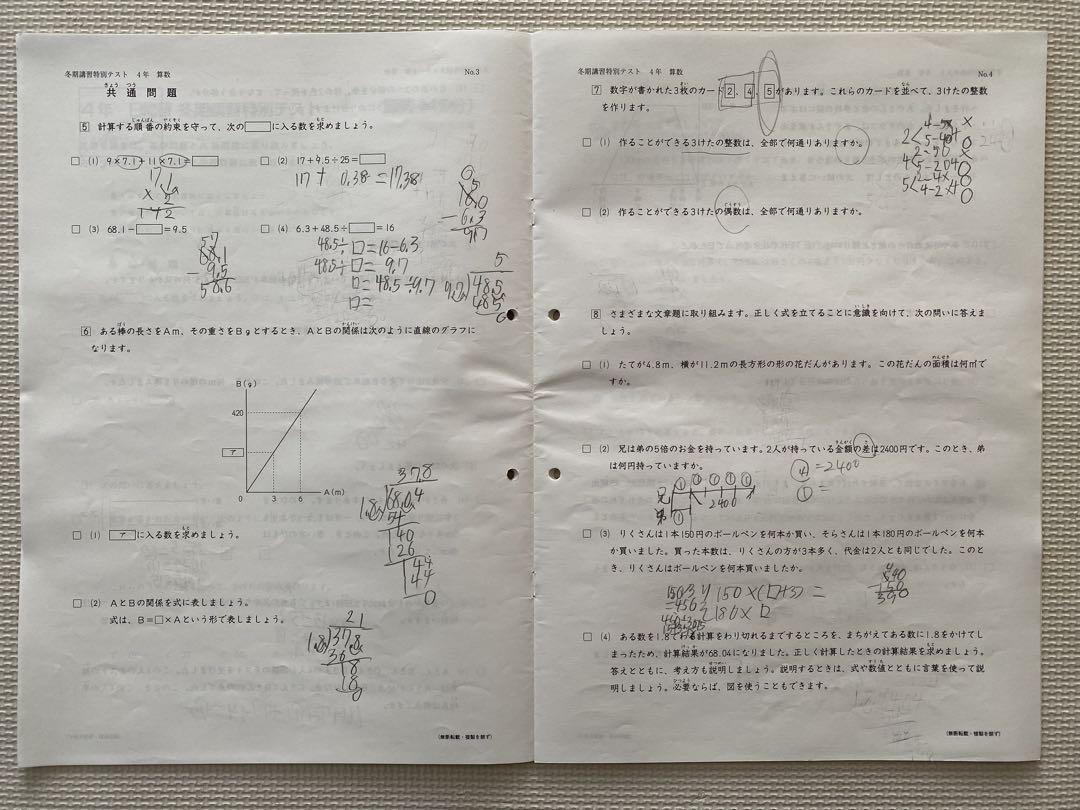 冬期講習特別テスト 4年 算数
No.3
共通問題
5 計算する順番の約束を守って、次の□に入る数を求めましょう。
□ (1) 9×7.1+11×7.1=□
□ (2) 17+9.5÷25=□
17+0.38=17.38
□ (3) 68.1-□=9.5
□ (4) 6.3+48.5÷□=16
48.5÷□=16-6.3
48.5÷□=9.7
□=48.5÷9.7
□=
68.1
-9.5
58.6
6 ある棒の長さをAm、その重さをBgとするとき、AとBの関係は次のように直線のグラフに
なります。
B(g)
420
ア
0 3 6 A(m)
□ (1) アに入る数を求めましょう。
37.8
□ (2) AとBの関係を式に表しましょう。
式は、B=□×Aという形で表しましょう。
21
(無断転載・複製を禁ず)
冬期講習特別テスト 4年 算数
No.4
7 数字が書かれた3枚のカード2、4、5があります。これらのカードを並べて、3けたの整数
を作ります。
□ (1) 作ることができる3けたの整数は、全部で何通りありますか。
□ (2) 作ることができる3けたの偶数は、全部で何通りありますか。
8 さまざまな文章題に取り組みます。正しく式を立てることに意識を向けて、次の問いに答えま
しょう。
□ (1) たてが4.8m、横が11.2mの長方形の形の花だんがあります。この花だんの面積は何㎡で
すか。
□ (2) 兄は弟の5倍のお金を持っています。2人が持っている金額の差は2400円です。このとき、弟
は何円持っていますか。
④=2400
①=
兄 ① ① ① ① ①
2400
弟 ①
□ (3) りくさんは1本150円のボールペンを何本か買い、そらさんは1本180円のボールペンを何本
か買いました。買った本数は、りくさんの方が3本多く、代金は2人とも同じでした。このと
き、りくさんはボールペンを何本買いましたか。
150×(□+3)=
180×□
□ (4) ある数を1.8でわる計算をわり切れるまでするところを、まちがえてある数に1.8をかけてし
まったため、計算結果が68.04になりました。正しく計算したときの計算結果を求めましょう。
答えとともに、考え方も説明しましょう。説明するときは、式や数値とともに言葉を使って説
明しましょう。必要ならば、図を使うこともできます。
(無断転載・複製を禁ず)